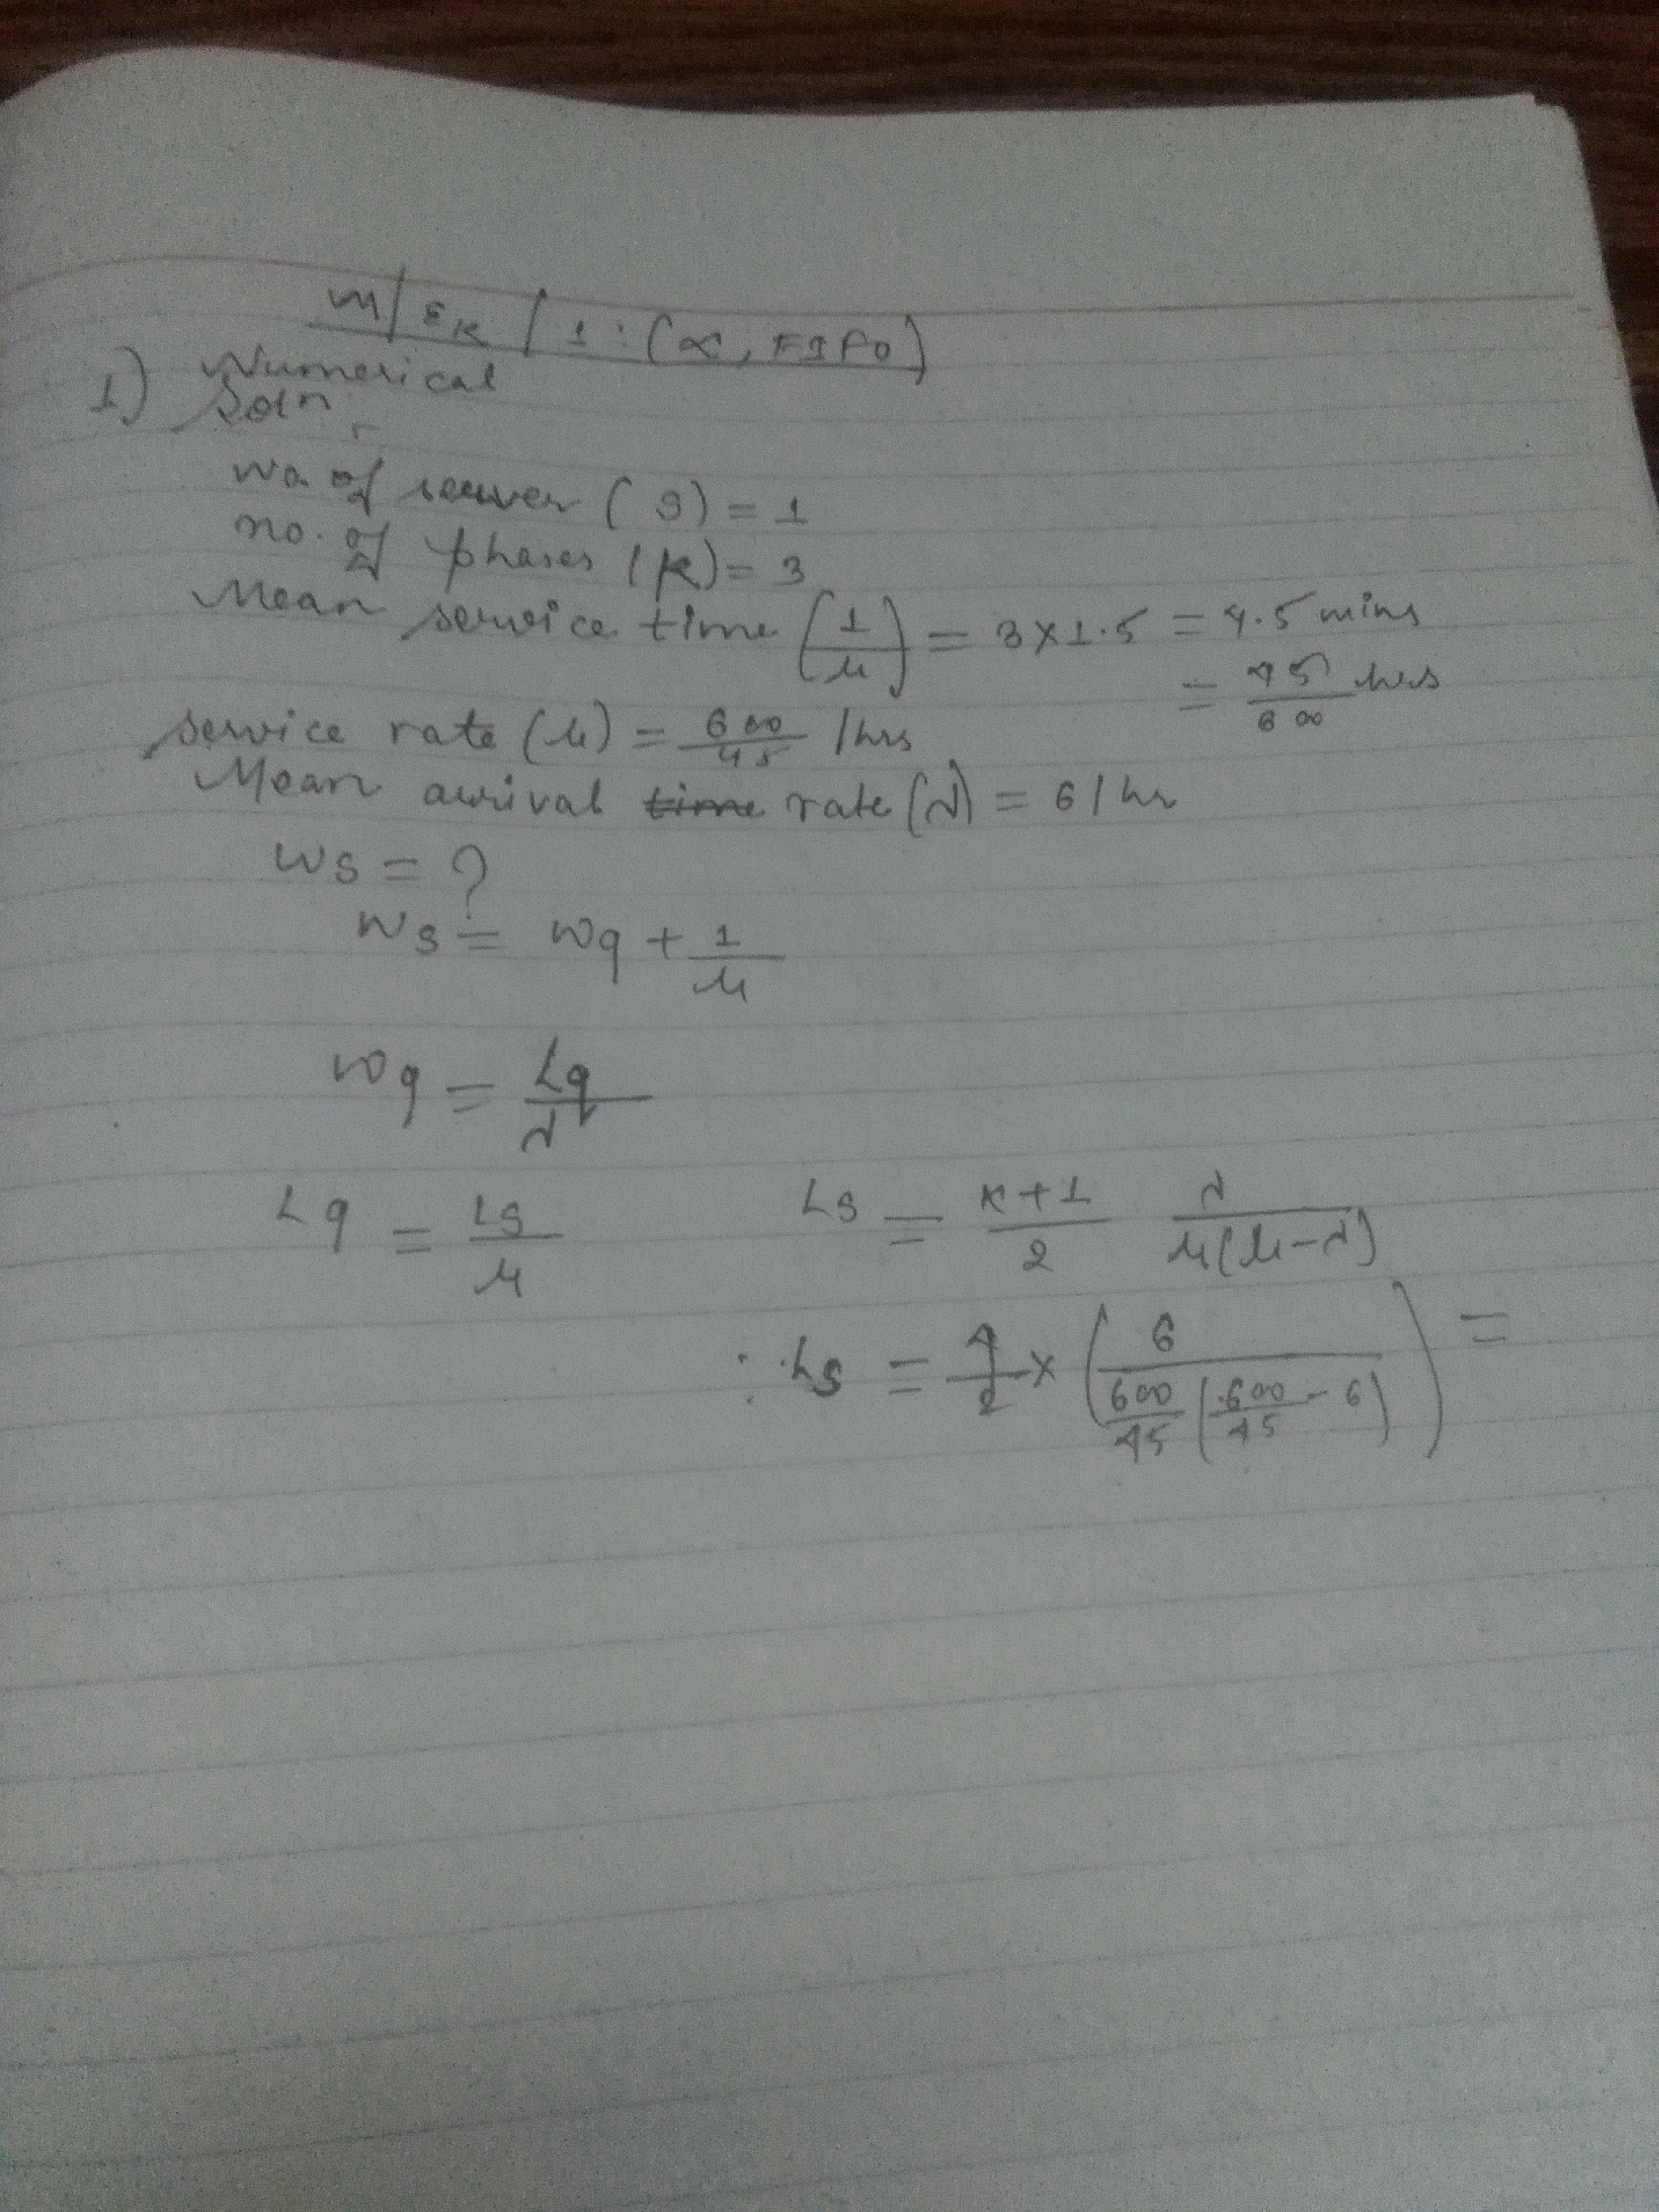 M/Ek/1:(∝, FIFO)
1) Numerical
Soln
No. of server (s) = 1
no. of phases (k) = 3
Mean service time (1/μ) = 3×1.5 = 4.5 mins
= 45/600 hrs
service rate (μ) = 600/45 /hrs
Mean arrival time rate (λ) = 6/hr
Ws = ?
Ws = Wq + 1/μ
Wq = Lq/λ
Lq = Ls/μ Ls = k+1/2 λ/μ(μ-λ)
∴ Ls = 4/2 × (6/(600/45 (600/45 - 6))) =